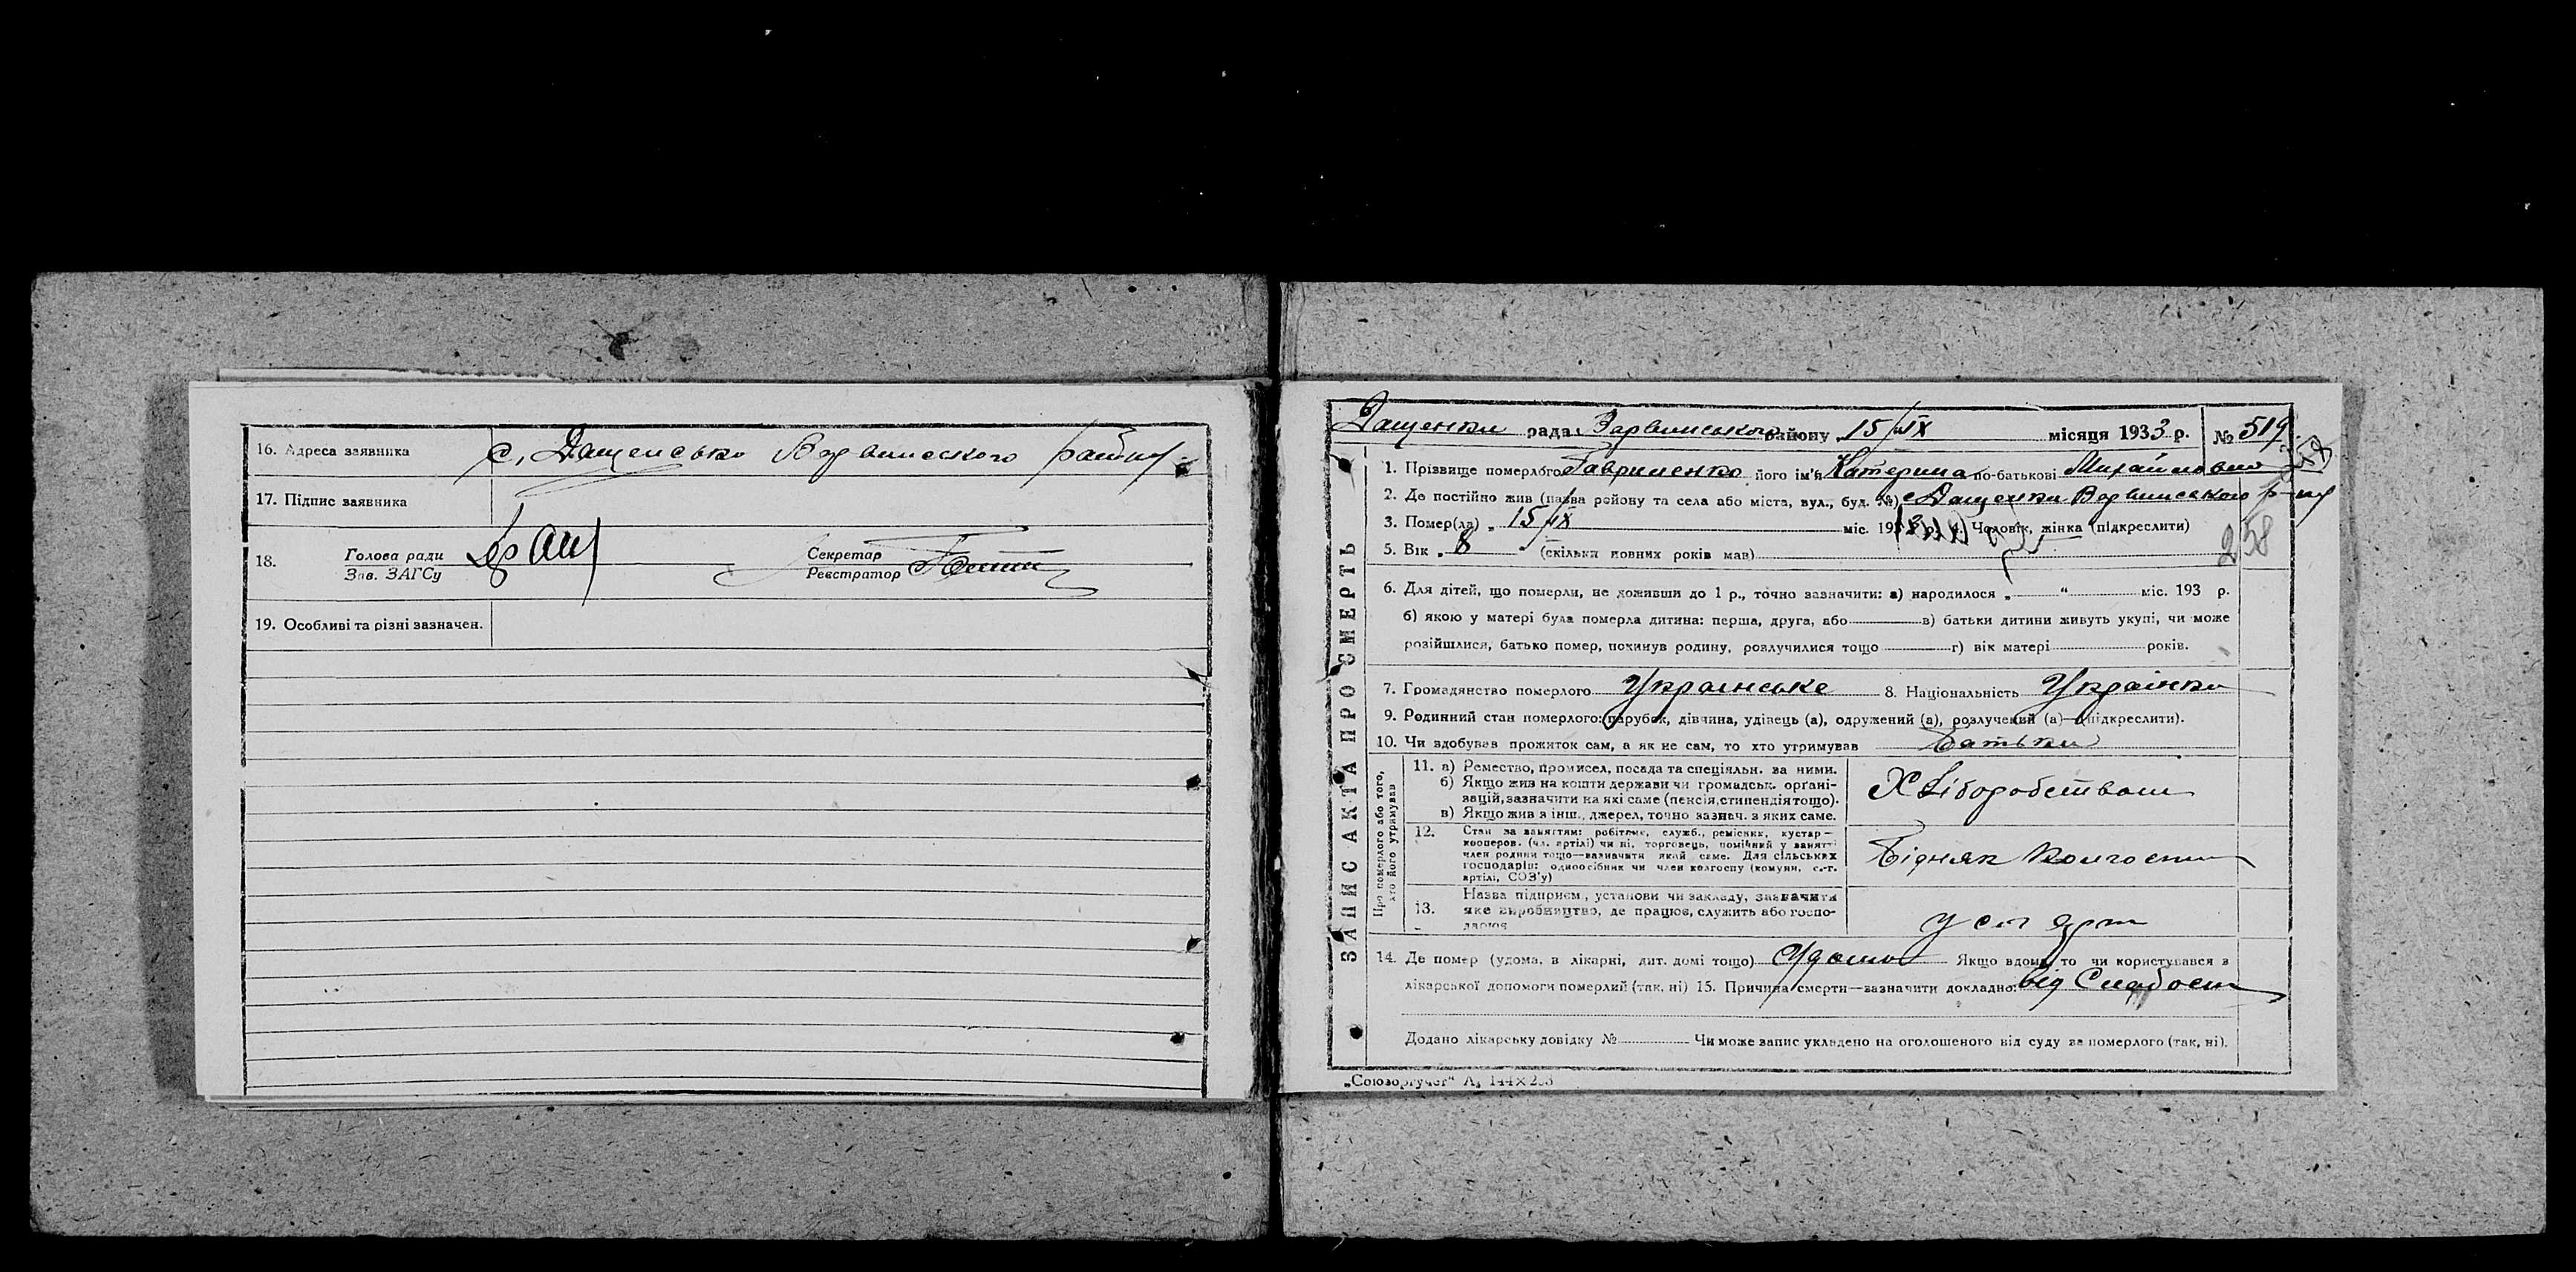 16. Адреса заявника с. Дащенсько Варвинского району
17. Підпис заявника
18. Голова ради Секретар
Зав. ЗАГСу Реєстратор
19. Особливі та різні зазначен.
ЗАПИС АКТА ПРО СМЕРТЬ
Дащенки рада Варвинського району 15/IX місяця 1933 р. № 519
1. Прізвище померлого Гавриленко його ім'я Катерина по-батькові Михайловно
2. Де постійно жив (назва району та села або міста, вул., буд. №) с Дащенки Варвинського р-ну
3. Помер(ла) „ 15/IX міс. 193 3 р. 4) Чоловік, жінка (підкреслити)
5. Вік „ 8 (скільки повних років мав)
258
6. Для дітей, що померли, не доживши до 1 р., точно зазначити: а) народилося „ “ міс. 193 р.
б) якою у матері була померла дитина: перша, друга, або в) батьки дитини живуть укупі, чи може
розійшлися, батько помер, покинув родину, розлучилися тощо г) вік матері років.
7. Громадянство померлого Українське 8. Національність Українка
9. Родинний стан померлого: парубок, дівчина, удівець (а), одружений (а), розлучений (а)—(підкреслити).
10. Чи здобував прожиток сам, а як не сам, то хто утримував батьки
Про померлого або того, хто його утримував
11. а) Ремество, промисел, посада та спеціяльн. за ними.
б) Якщо жив на кошти держави чи громадськ. органі-
зацій, зазначити на які саме (пенсія, стипендія тощо).
в) Якщо жив з інш., джерел, точно зазнач. з яких саме.
Хліборобством
12. Стан за заняттям: робітник, служб., ремісник, кустар—
кооперов. (чл. артілі) чи ні, торговець, помічний у занятті
член родини тощо—зазначити який саме. Для сільських
господарів: одноосібник чи член колгоспу (комуни, с.-г.
артілі, СОЗ'у)
Бідняк Колгоспник
13. Назва підприєм., установи чи закладу, зазначити
яке виробництво, де працює, служить або госпо-
дарює
у с г арт
14. Де помер (удома, в лікарні, дит. домі тощо) Удома Якщо вдома, то чи користувався з
лікарської допомоги померлий (так, ні) 15. Причина смерти—зазначити докладно: від Слабости
Додано лікарську довідку № Чи може запис укладено на оголошеного від суду за померлого (так, ні).
„Союзоргучет“ А₅ 144×203